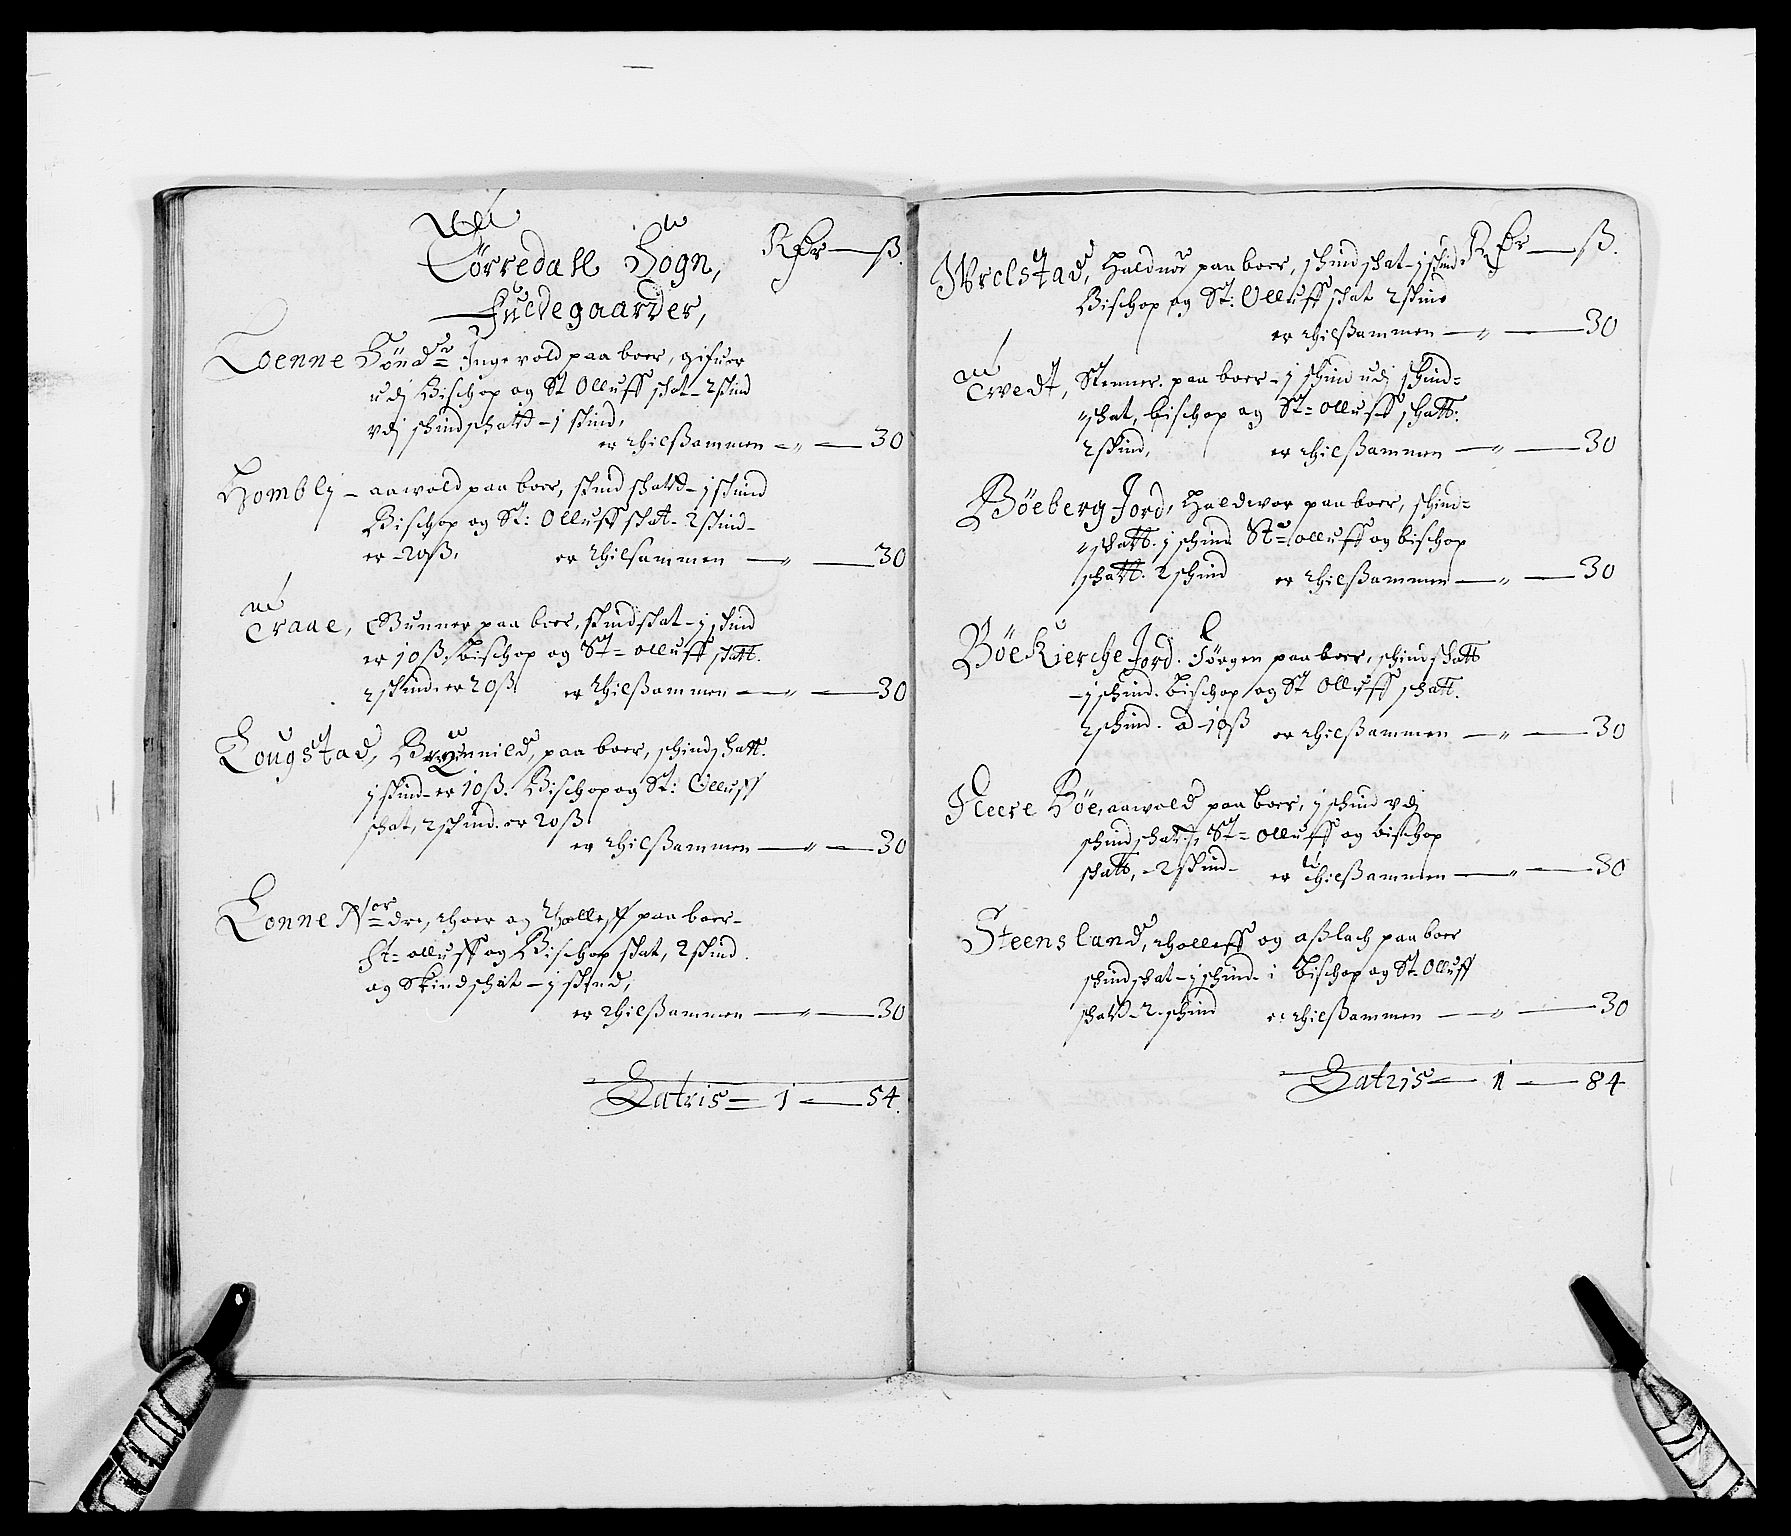 Tørredall Sogn, Rdr — ß.
Fuldegaarder,
Loenne Sønd: Ingevold paa boer, gifuer
udj Bischop og St Olluff skat - 2 skind
vdj schindschatt - j skind,
er thilßammen - „ — 30
Hombly - aawold paa boer, skind schatt - j skind
Bischop og St: Olluff skat - 2 skind -
er - 20ß, er thilsammen — „ — 30
Traae, Gunner paa boer, skindskat - j skind
er 10ß, bischop og St= olluff skatt.
2 skind er 20ß er thilßammen — „ — 30
Lougstad, paa boer, schindschatt.
j skind - er 10ß. Bischop og St: Olluff
schat, 2 skind. er 20ß
er thilßammen — „ — 30
Lonne Nordre, thoer og tholleff paa boer -
St= olluff og Bischop skat, 2 skind.
og Skindschat - j skind,
er thilßammen — „ — 30
Latris — 1 — 54.
Wrelstad, Halduor paa boer, schindschat - j skind Rdr — ß.
Bischop og St: Olluff skat 2 skind
er thilßammen — „ — 30
Tvedt, Stenner paa boer - j schind udj schind=
schat, bischop og St= olluff schatt.
2 skind, er thilßammen — „ — 30
Bøeberg Jord, Haldwor paa boer, schind=
schatt. j schind St= olluff og bischop
schatt. 2 schind er thilßammen — „ — 30
Bøe Kierche Jord. Jørgen paa boer, schindschatt
- j schind. bischop og St Olluff schatt.
2 schind. ad - 10ß er thilßammen — „ — 30
Neere Bøe, aawold paa boer, j schind vdj
schindschatt, St= olluff og bischop
schatt, - 2 skind - er thilßammen — „ — 30
Steensland, tholleff og aßlach paa boer
schindschat - j schind. i bischop og St Olluff
schatt - 2 schind er thilßammen — „ — 30
Latris — 1 — 84